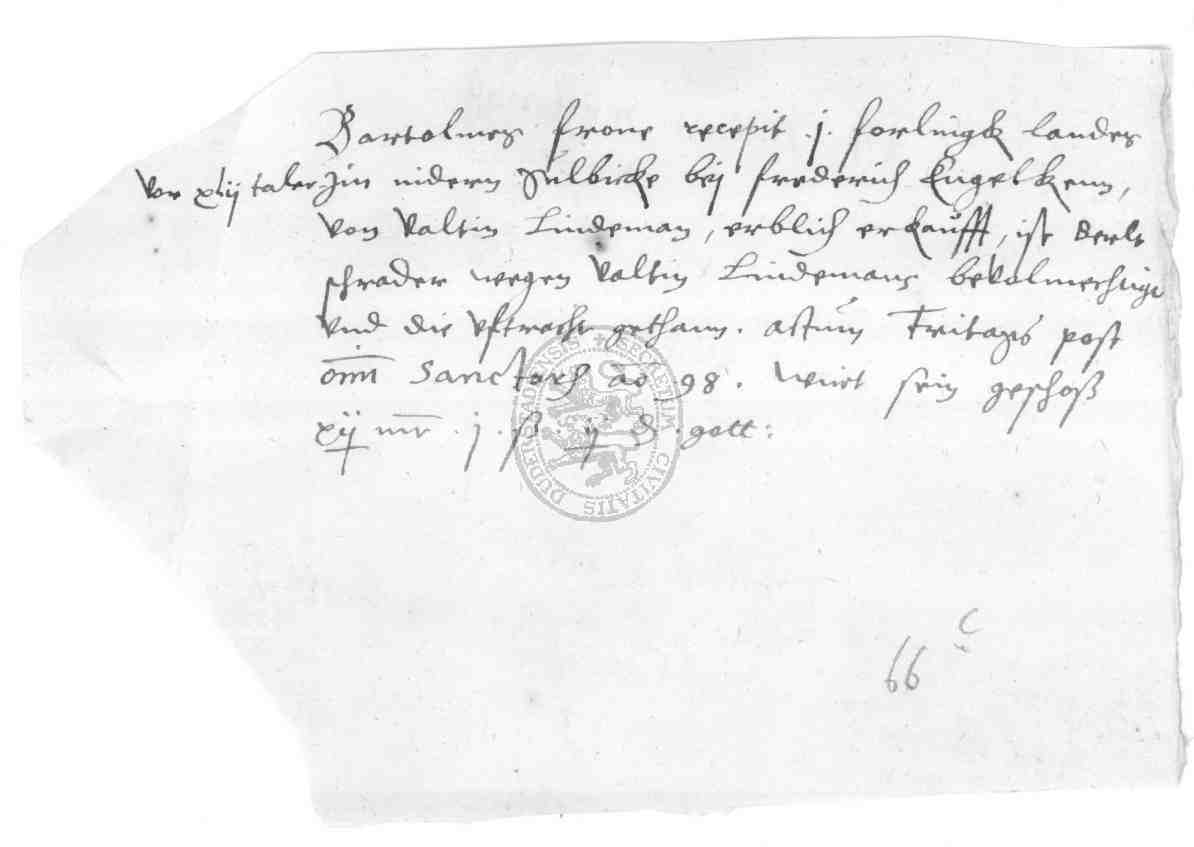 Bartolmes frone recepit .j. forlingk landes
vor xlij taler Jm nidern Sulbicke beÿ frederich Engelkenn,
von Valtin Lindeman, erblich erkaufft, ist Berlt
schrader wegen Valtin Lindemans bevolmechtigt
vnd die vftracht gethann. actum Fritags post
oīm Sanctorū aō 98. Wurt sein geschoß
xij mr . j . ß ij ₰ gott:
66 c
DUDERSTADENSIS SECRETUM CIVITATIS